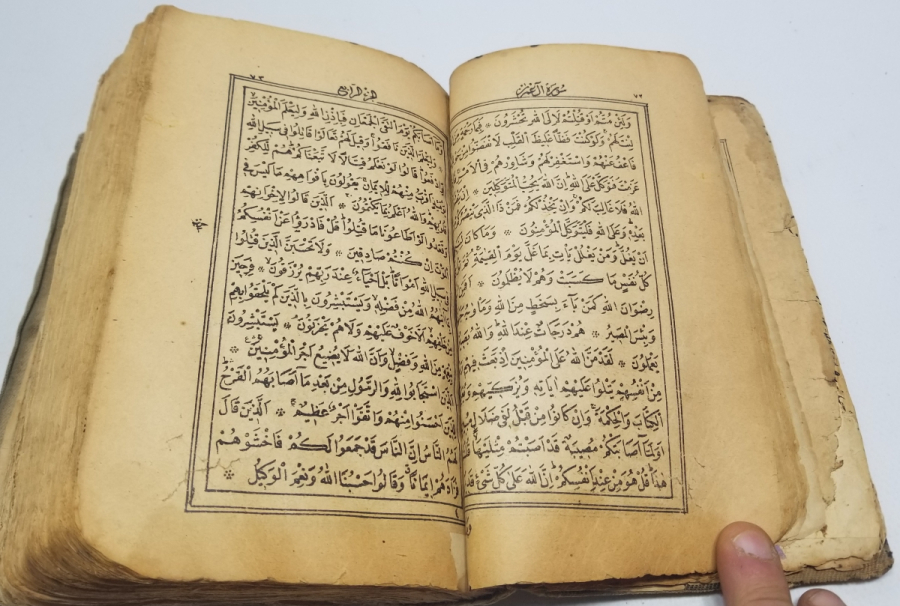 ٧٢
سورة آل عمران
وَلَئِنْ مُتُّمْ اَوْ قُتِلْتُمْ لَاِلَى اللّٰهِ تُحْشَرُونَ * فَبِمَا رَحْمَةٍ
لِنْتَ لَهُمْ وَلَوْ كُنْتَ فَظًّا غَلِيظَ الْقَلْبِ لَانْفَضُّوا
فَاعْفُ عَنْهُمْ وَاسْتَغْفِرْ لَهُمْ وَشَاوِرْهُمْ فِي الْاَمْرِ
عَزَمْتَ فَتَوَكَّلْ عَلَى اللّٰهِ اِنَّ اللّٰهَ يُحِبُّ الْمُتَوَكِّلِينَ *
اللّٰهُ فَلَا غَالِبَ لَكُمْ وَاِنْ يَخْذُلْكُمْ فَمَنْ ذَا الَّذِي
بَعْدِهِ وَعَلَى اللّٰهِ فَلْيَتَوَكَّلِ الْمُؤْمِنُونَ * وَمَا كَانَ
اَنْ يَغُلَّ وَمَنْ يَغْلُلْ يَأْتِ بِمَا غَلَّ يَوْمَ الْقِيٰمَةِ
كُلُّ نَفْسٍ مَا كَسَبَتْ وَهُمْ لَا يُظْلَمُونَ *
رِضْوَانَ اللّٰهِ كَمَنْ بَاءَ بِسَخَطٍ مِنَ اللّٰهِ
وَبِئْسَ الْمَصِيرُ * هُمْ دَرَجَاتٌ عِنْدَ اللّٰهِ وَاللّٰهُ
يَعْمَلُونَ * لَقَدْ مَنَّ اللّٰهُ عَلَى الْمُؤْمِنِينَ اِذْ بَعَثَ فِيهِمْ
مِنْ اَنْفُسِهِمْ يَتْلُوا عَلَيْهِمْ اٰيَاتِهِ وَيُزَكِّيهِمْ
الْكِتَابَ وَالْحِكْمَةَ وَاِنْ كَانُوا مِنْ قَبْلُ لَفِي ضَلَالٍ
اَوَلَمَّا اَصَابَتْكُمْ مُصِيبَةٌ قَدْ اَصَبْتُمْ مِثْلَيْهَا
هٰذَا قُلْ هُوَ مِنْ عِنْدِ اَنْفُسِكُمْ اِنَّ اللّٰهَ عَلَى كُلِّ شَيْءٍ
الجزء الرابع
٧٣
اَصَابَكُمْ يَوْمَ الْتَقَى الْجَمْعَانِ فَبِاِذْنِ اللّٰهِ وَلِيَعْلَمَ الْمُؤْمِنِينَ
وَلِيَعْلَمَ الَّذِينَ نَافَقُوا وَقِيلَ لَهُمْ تَعَالَوْا قَاتِلُوا فِي سَبِيلِ اللّٰهِ
ادْفَعُوا قَالُوا لَوْ نَعْلَمُ قِتَالًا لَاتَّبَعْنَاكُمْ هُمْ لِلْكُفْرِ
اَقْرَبُ مِنْهُمْ لِلْاِيمَانِ يَقُولُونَ بِاَفْوَاهِهِمْ مَا لَيْسَ فِي
وَاللّٰهُ اَعْلَمُ بِمَا يَكْتُمُونَ * اَلَّذِينَ قَالُوا لِاِخْوَانِهِمْ
وَقَعَدُوا لَوْ اَطَاعُونَا مَا قُتِلُوا قُلْ فَادْرَؤُا عَنْ اَنْفُسِكُمُ
الْمَوْتَ اِنْ كُنْتُمْ صَادِقِينَ * وَلَا تَحْسَبَنَّ الَّذِينَ قُتِلُوا
سَبِيلِ اللّٰهِ اَمْوَاتًا بَلْ اَحْيَاءٌ عِنْدَ رَبِّهِمْ يُرْزَقُونَ * فَرِحِينَ
اللّٰهُ مِنْ فَضْلِهِ وَيَسْتَبْشِرُونَ بِالَّذِينَ لَمْ يَلْحَقُوا بِهِمْ
خَلْفِهِمْ اَلَّا خَوْفٌ عَلَيْهِمْ وَلَا هُمْ يَحْزَنُونَ * يَسْتَبْشِرُونَ
مِنَ اللّٰهِ وَفَضْلٍ وَاَنَّ اللّٰهَ لَا يُضِيعُ اَجْرَ الْمُؤْمِنِينَ *
اسْتَجَابُوا لِلّٰهِ وَالرَّسُولِ مِنْ بَعْدِ مَا اَصَابَهُمُ الْقَرْحُ
لِلَّذِينَ اَحْسَنُوا مِنْهُمْ وَاتَّقَوْا اَجْرٌ عَظِيمٌ * اَلَّذِينَ قَالَ
لَهُمُ النَّاسُ اِنَّ النَّاسَ قَدْ جَمَعُوا لَكُمْ فَاخْشَوْهُمْ
فَزَادَهُمْ اِيمَانًا وَقَالُوا حَسْبُنَا اللّٰهُ وَنِعْمَ الْوَكِيلُ *